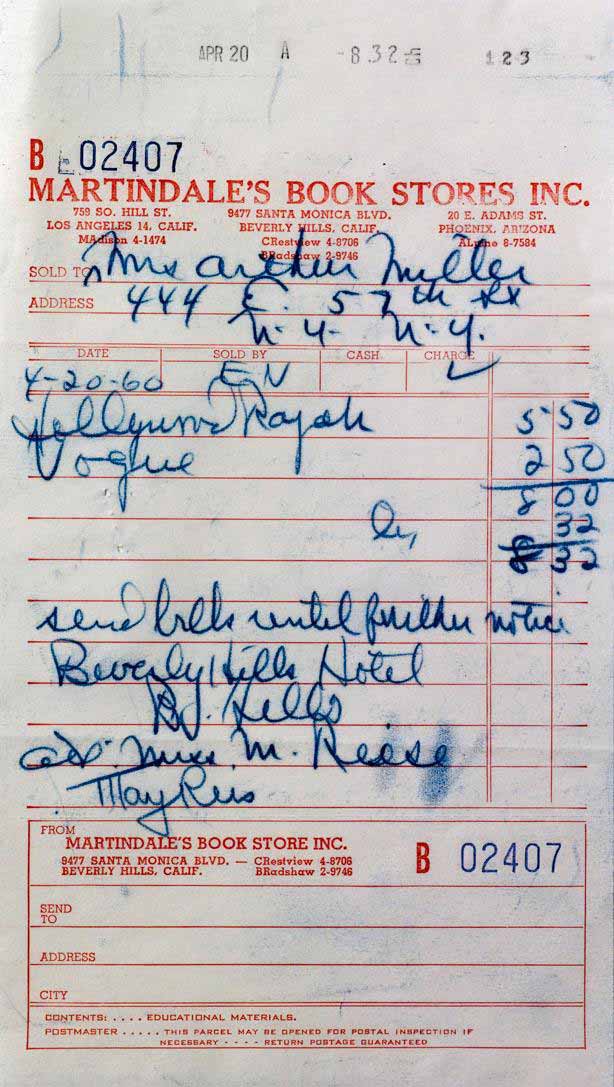 APR 20 A -8.32
123
B 02407
MARTINDALE'S BOOK STORES INC.
759 SO. HILL ST. 9477 SANTA MONICA BLVD. 20 E. ADAMS ST.
LOS ANGELES 14, CALIF. BEVERLY HILLS, CALIF. PHOENIX, ARIZONA
MAdison 4-1474 CRestview 4-8706 ALpine 8-7584
BRadshaw 2-9746
SOLD TO Mrs Arthur Miller
ADDRESS 444 E. 57th St
N.Y. N.Y.
DATE SOLD BY CASH CHARGE
4-20-60 EN ✓
Hollywood Rajah 5 50
Vogue 2 50
8 00
32
8 32
send bills until further notice
Beverly Hills Hotel
Bev. Hills
Miss M. Reese
May Reis
FROM
MARTINDALE'S BOOK STORE INC.
9477 SANTA MONICA BLVD. — CRestview 4-8706
BEVERLY HILLS, CALIF. BRadshaw 2-9746
B 02407
SEND
TO
ADDRESS
CITY
CONTENTS: .... EDUCATIONAL MATERIALS.
POSTMASTER ..... THIS PARCEL MAY BE OPENED FOR POSTAL INSPECTION IF
NECESSARY - - - - RETURN POSTAGE GUARANTEED